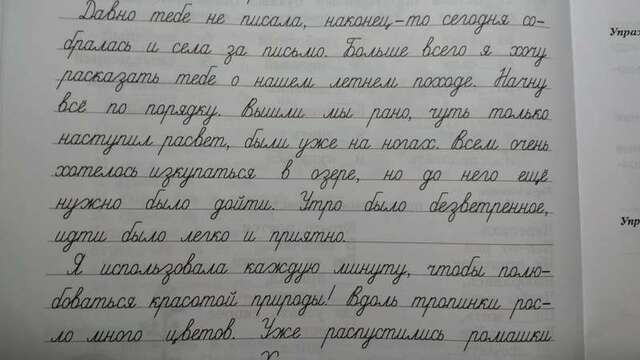 Давно тебе не писала, наконец,-то сегодня со-
бралась и села за письмо. Больше всего я хочу
расказать тебе о нашем летнем походе. Начну
все по порядку. Вышли мы рано, чуть только
наступил расвет, были уже на ногах. Всем очень
хотелось изкупаться в озере, но до него ещё
нужно было дойти. Утро было безветренное,
идти было легко и приятно.
Я использовала каждую минуту, чтобы полю-
боваться красотой природы! Вдоль тропинки рос-
ло много цветов. Уже распустились ромашки
Упраж
Упр